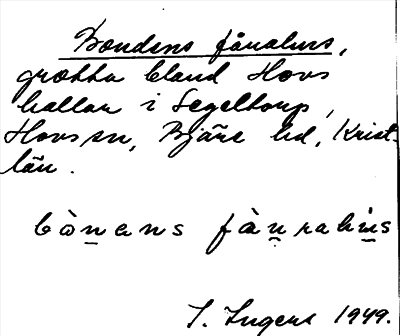 Bondens fåralus,
grotta bland Hovs
hallar i Segeltorp,
Hovs sn, Bjäre hd, Krist.
län.
bònens fàuralùs
I. Ingers 1949.